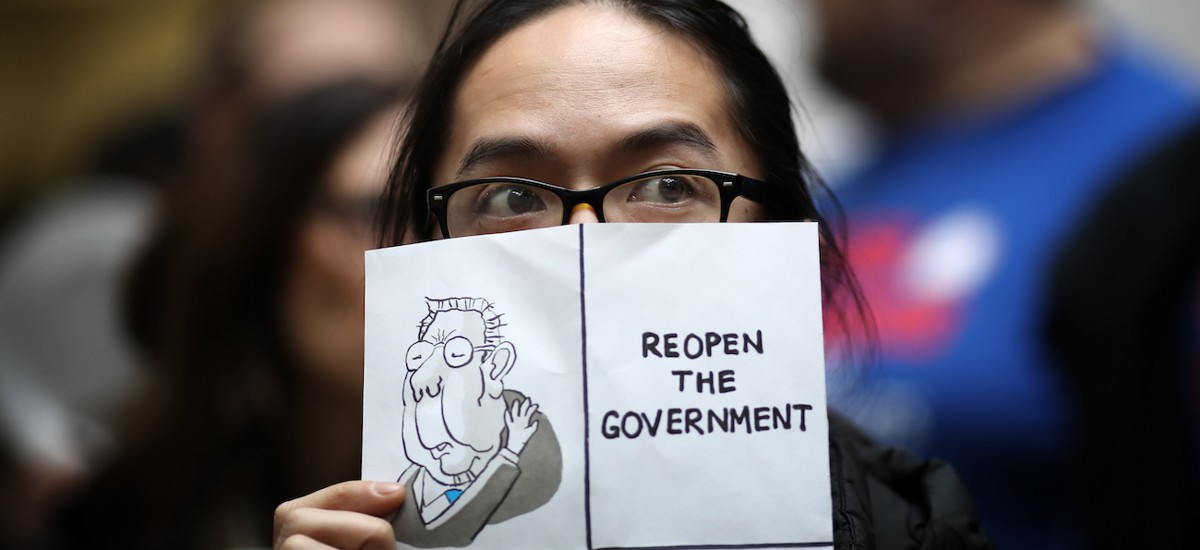 REOPEN
THE
GOVERNMENT